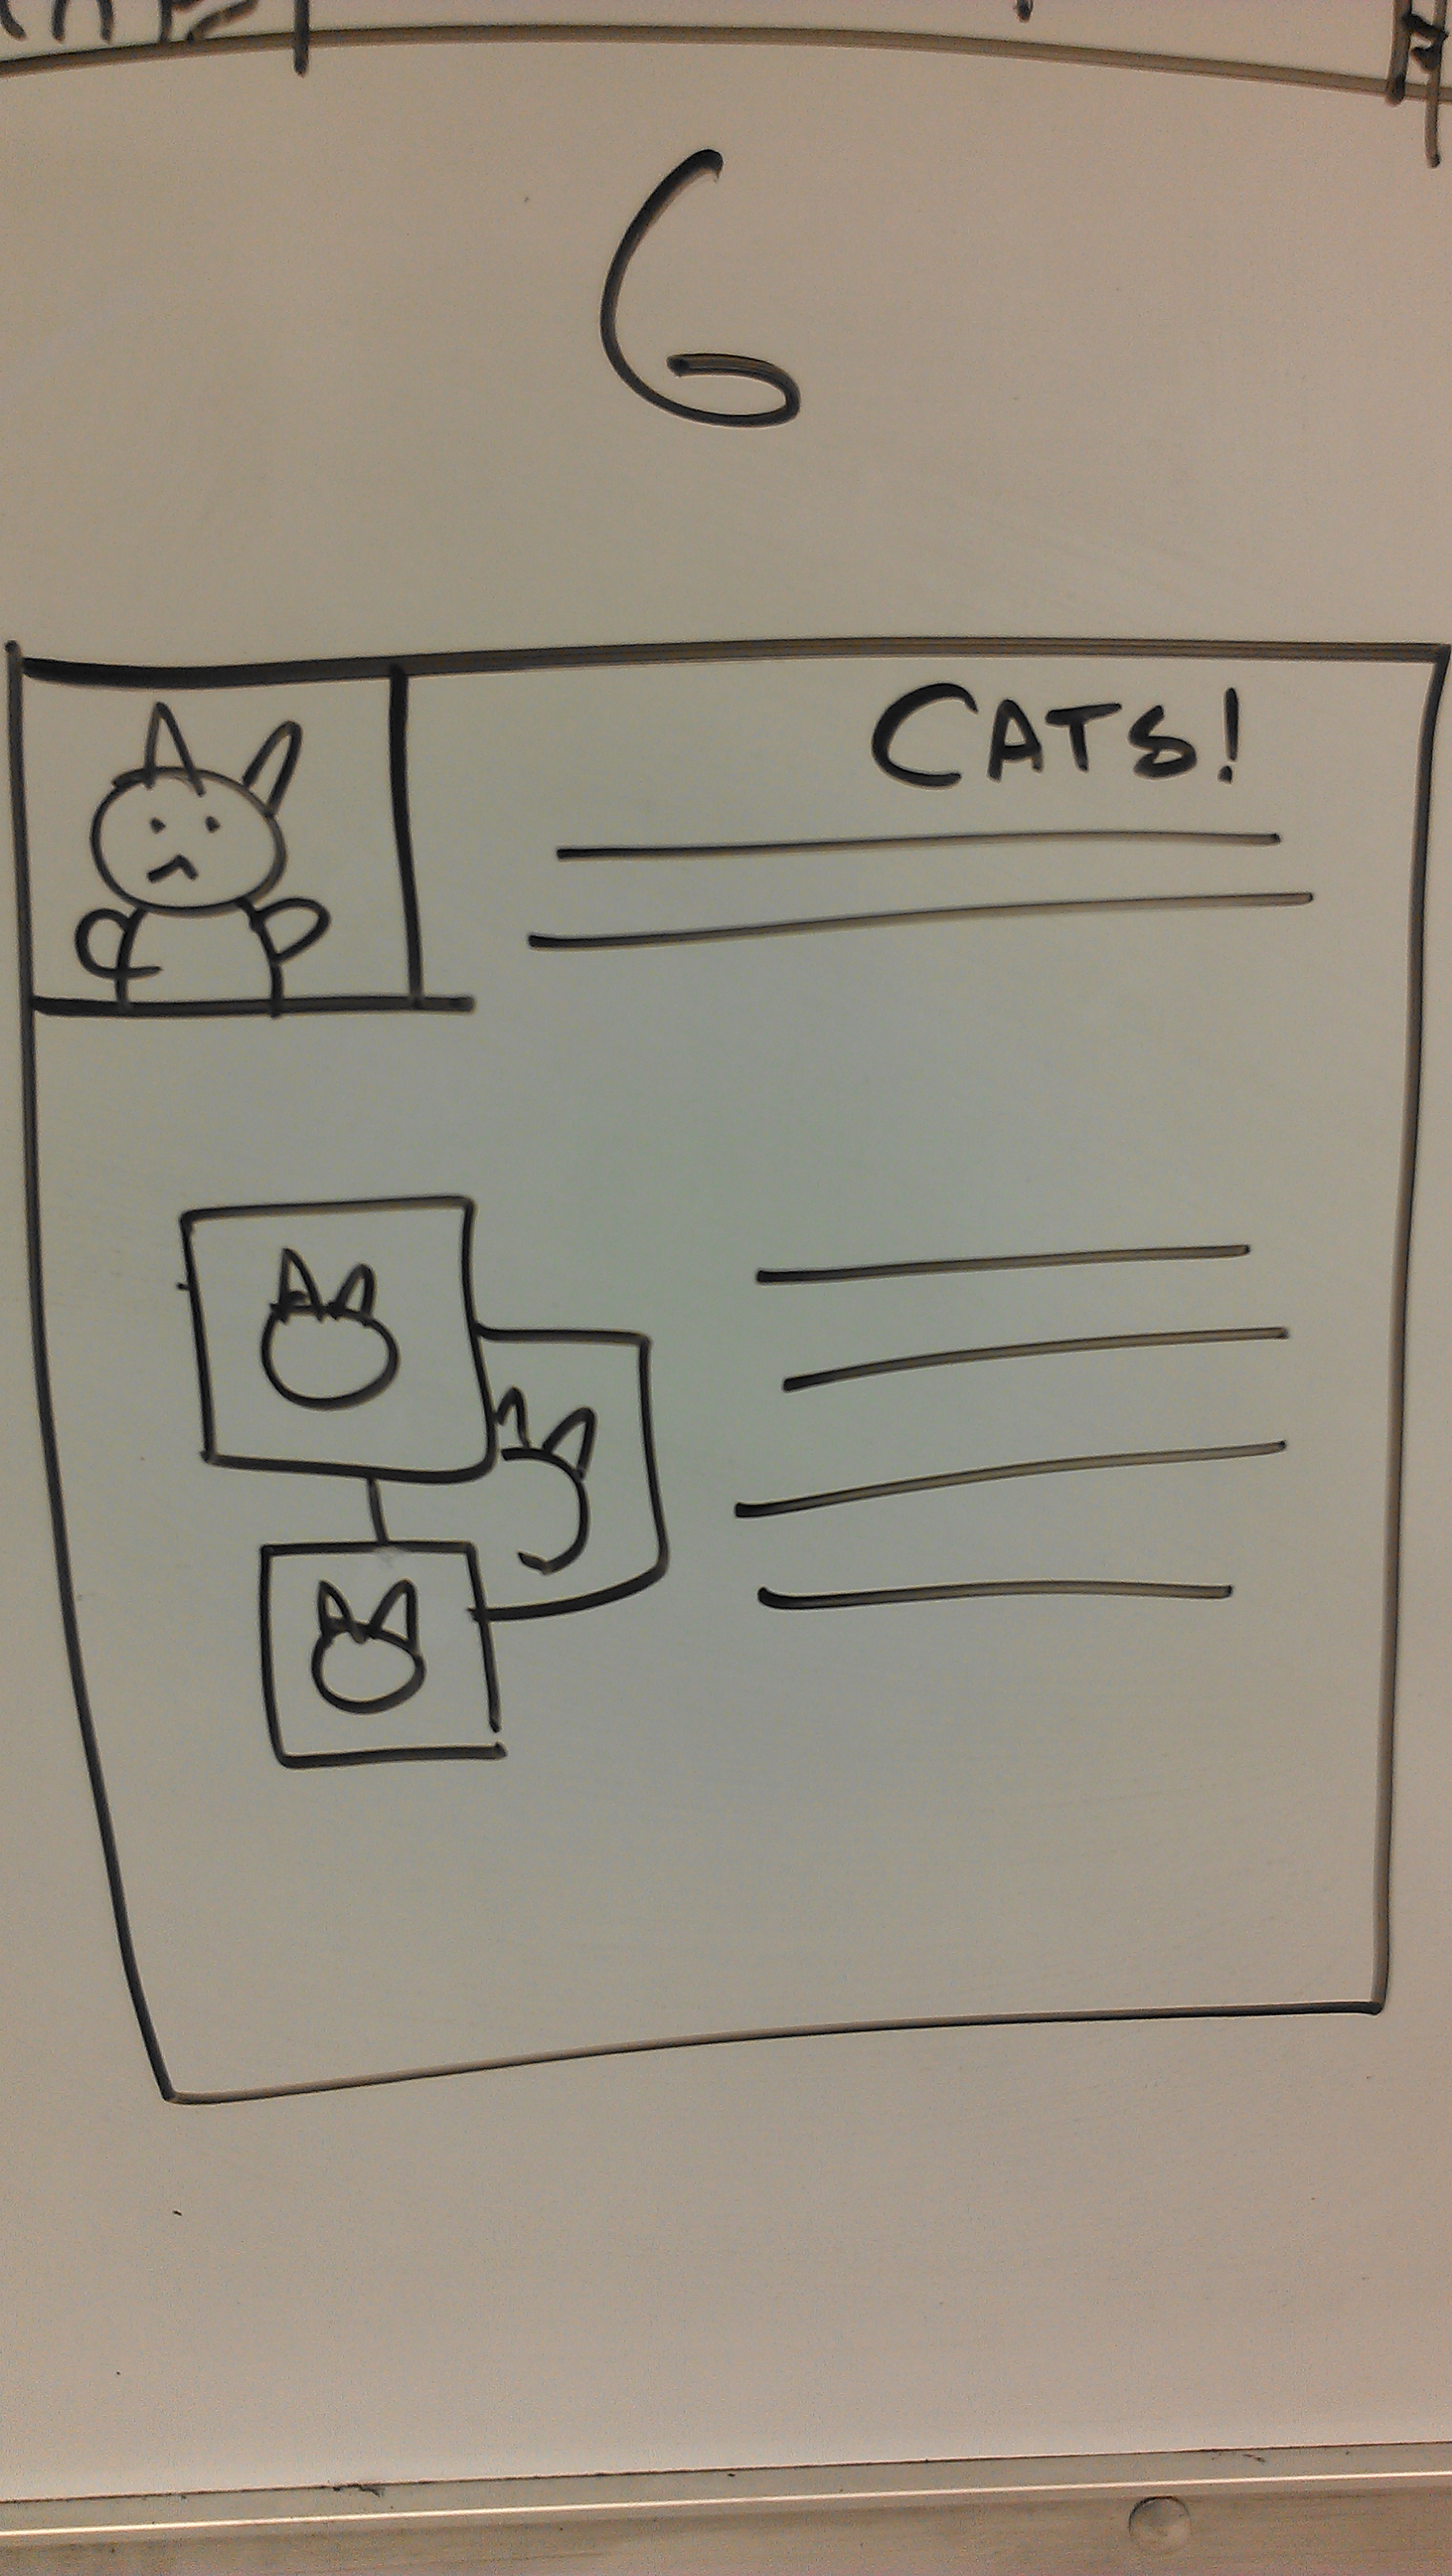 6
CATS!